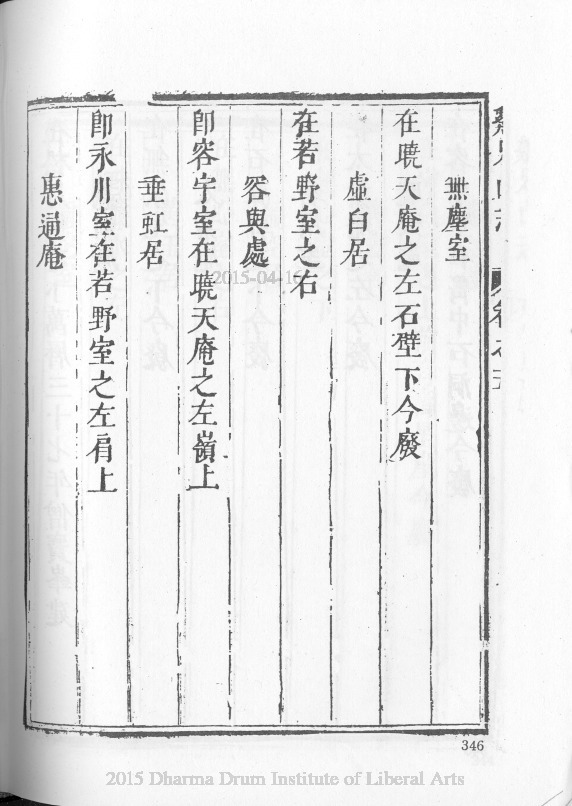 無塵室
在曉天庵之左石壁下今廢
虛白居
在若野室之右
容與處
卽容宇室在曉天庵之左嶺上
垂虹居
卽永川室在若野室之左肩上
惠通庵
346
2015-04-16
2015 Dharma Drum Institute of Liberal Arts